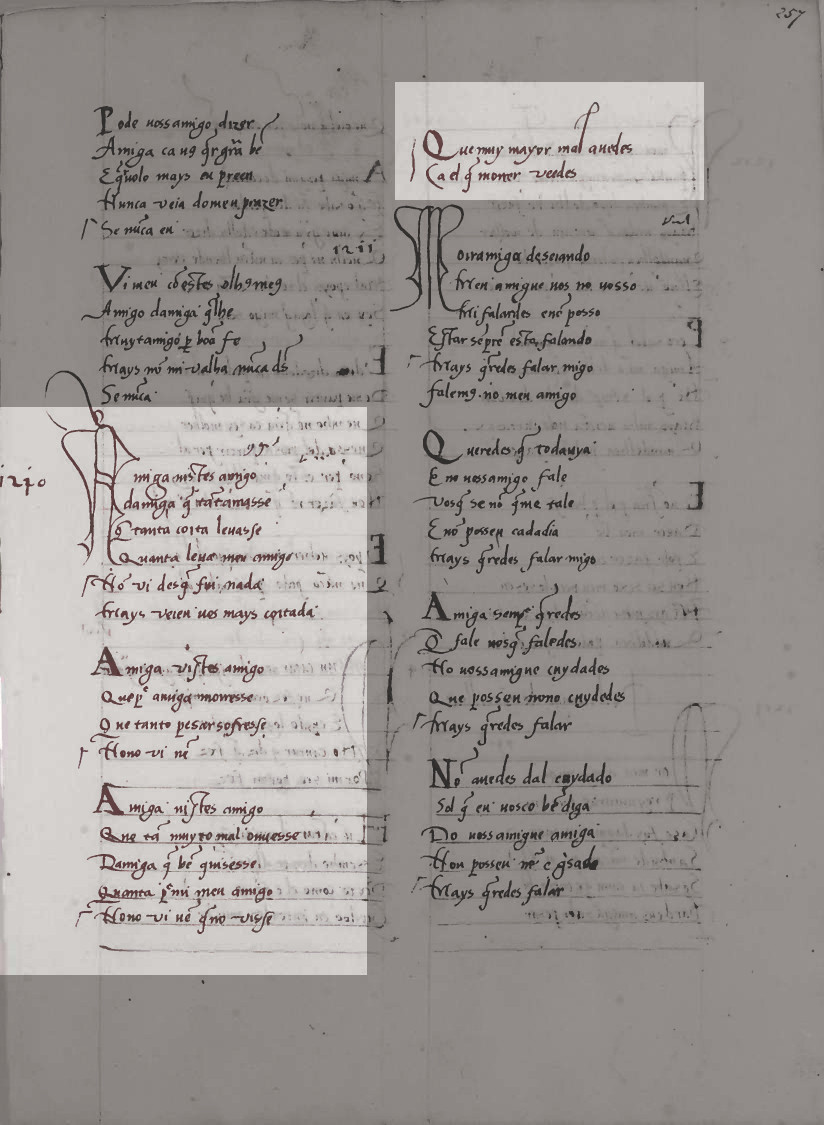 257
Pode uossamigo dizer
Amiga ca uꝯ q̄r grã bē
E q̄uolo mays eu preen
Nunca ueia domen prazer
Se nũca en
1211
Vi meu cõ estes olhꝯ meꝯ
Amigo damiga q̄ lhe
Muyt amigo p̱ boa fe
Mays nõ mi valha nũca ds̄
Se nũca
1210
Amiga uistes amigo
damiga q̄ tãt amasse
Q̄ tanta coita leuasse
Quanta leua meu amigo
Nõ ui desq̄ fui nada
Mays ueien uos mays coitada
Amiga vistes amigo
Que pᵉ amiga moiresse
Que tanto pesar sofresse
Nono vi nē
Amiga uistes amigo
Que tã muyto mal ouuesse
Damiga q̄ bē quisesse
Quanta pᵉ mi meu amigo
Nono vi nē q̄ no visse
Que muy mayor mal auedes
Ca el q̄ morrer veedes
Moir amiga deseiando
Meu amigue uos no uosso
Mi falardes enē posso
Estar sēpre esta falando
Mays q̄redes falar migo
falemꝯ no meu amigo
Queredes q̄ todauya
Eno uossamigo fale
vosq̄ se nõ q̄ me cale
E nõ posseu cada dia
Mays q̄redes falar migo
Amiga sempᵉ q̄redes
Q̄ fale uosq̄ faledes
No uossamigue cuydades
Que posseu nono cuydedes
Mays q̄redes falar
Nõ auedes dal cuydado
Sol q̄ eu uosco bē diga
Do uossamigue amiga
Non posseu nē e g̃sado
Mays q̄redes falar